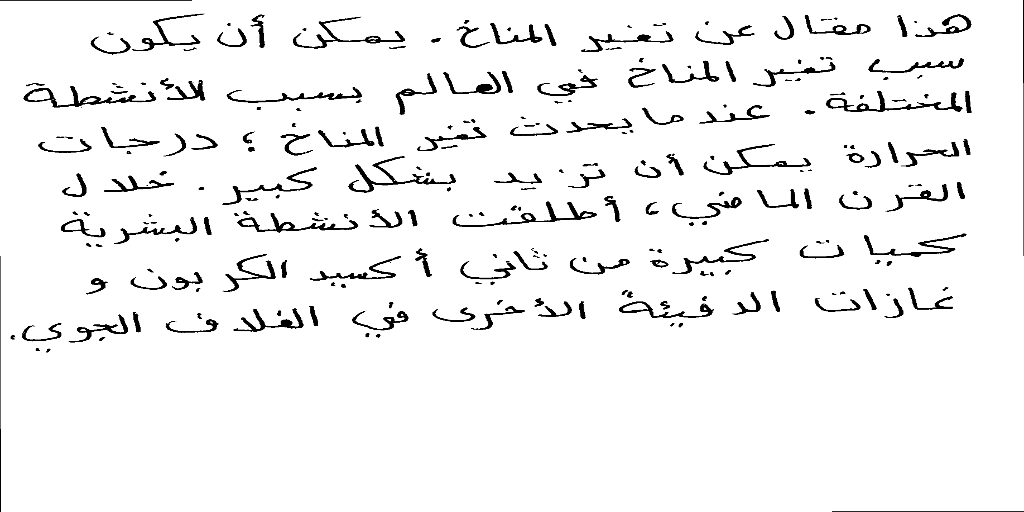 هذا مقال عن تغير المناخ. يمكن أن يكون
سبب تغير المناخ في العالم بسبب الأنشطة
المختلفة. عندما يحدث تغير المناخ ؛ درجات
الحرارة يمكن أن تزيد بشكل كبير. خلال
القرن الماضي، أطلقت الأنشطة البشرية
كميات كبيرة من ثاني أكسيد الكربون و
غازات الدفيئة الأخرى في الغلاف الجوي.